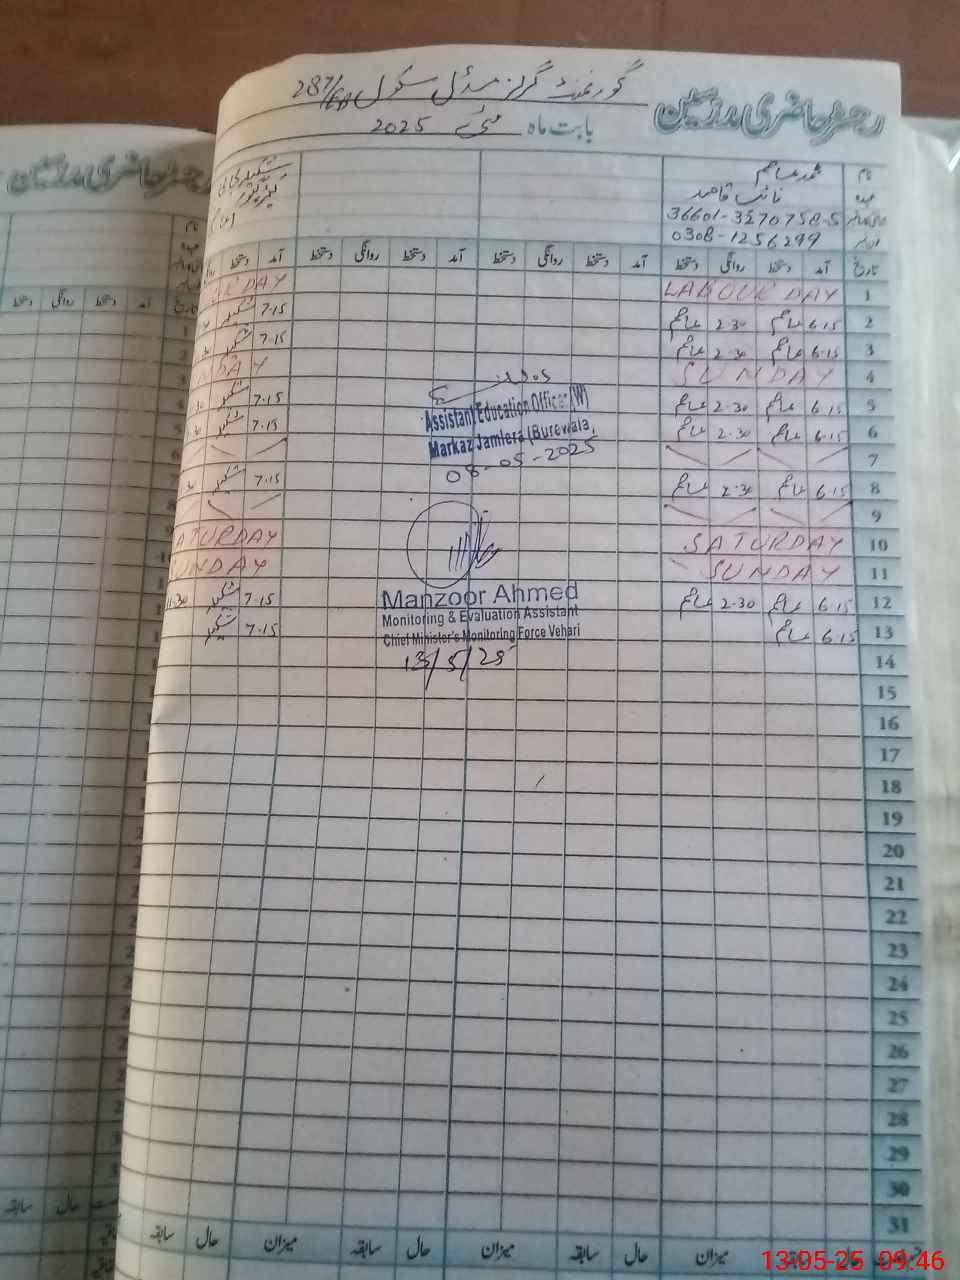 گورنمنٹ گرلز مڈل سکول 287/EB
رجسٹر حاضری مدرسین
بابت ماہ مئی 2025
رجسٹر حاضری مدرسین
نام محمد عاصم
عہدہ نائب قاصد
36601-3270758-5
0308-1256299
تاریخ آمد دستخط روانگی دستخط آمد دستخط روانگی دستخط آمد دستخط روانگی دستخط آمد دستخط
1 LABOUR DAY
2 6.15 عاصم 2-30 عاصم 7.15
3 6.15 عاصم 2-30 عاصم 7.15
4 SUNDAY
5 6.15 عاصم 2-30 عاصم 7.15
6 6.15 عاصم 2-30 عاصم 7.15
7
8 6.15 عاصم 2-30 عاصم 7.15
9
10 SATURDAY SATURDAY
11 SUNDAY SUNDAY
12 6.15 عاصم 2-30 عاصم 7.15
13 6.15 عاصم 7.15
14
15
16
17
18
19
20
21
22
23
24
25
26
27
28
29
30
31
Assistant Education Officer (W)
Markaz Jamlera (Burewala)
08-05-2025
Manzoor Ahmed
Monitoring & Evaluation Assistant
Chief Minister's Monitoring Force Vehari
13/5/25
میزان حال سابقہ میزان حال سابقہ میزان حال سابقہ
حال سابقہ
13-05-25 09:46